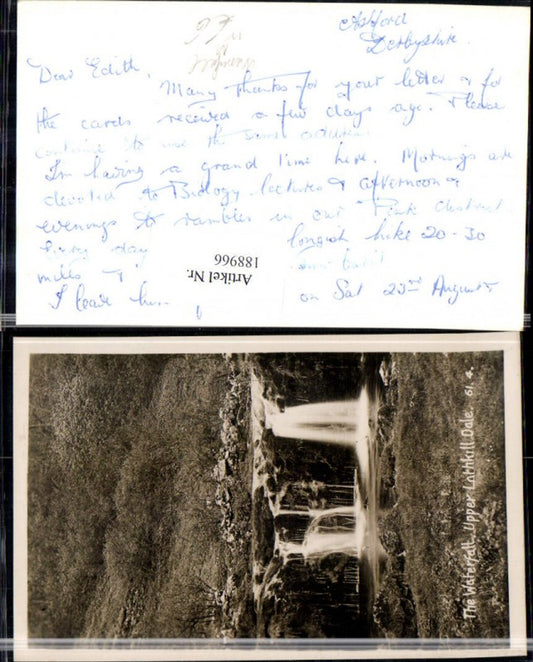 Ashford
Derbyshire.
Dear Edith,
Many thanks for your letter & for
the cards received a few days ago. Please
continue to use the same address
I'm having a grand time here. Mornings are
devoted to Biology lectures & afternoon &
evenings to rambles in our Peak district
Every day longish hike 20-30
miles
I leave here on Sat 23rd August
Artikel Nr.
188966
The Waterfall. Upper Lathkill Dale. 61.4.